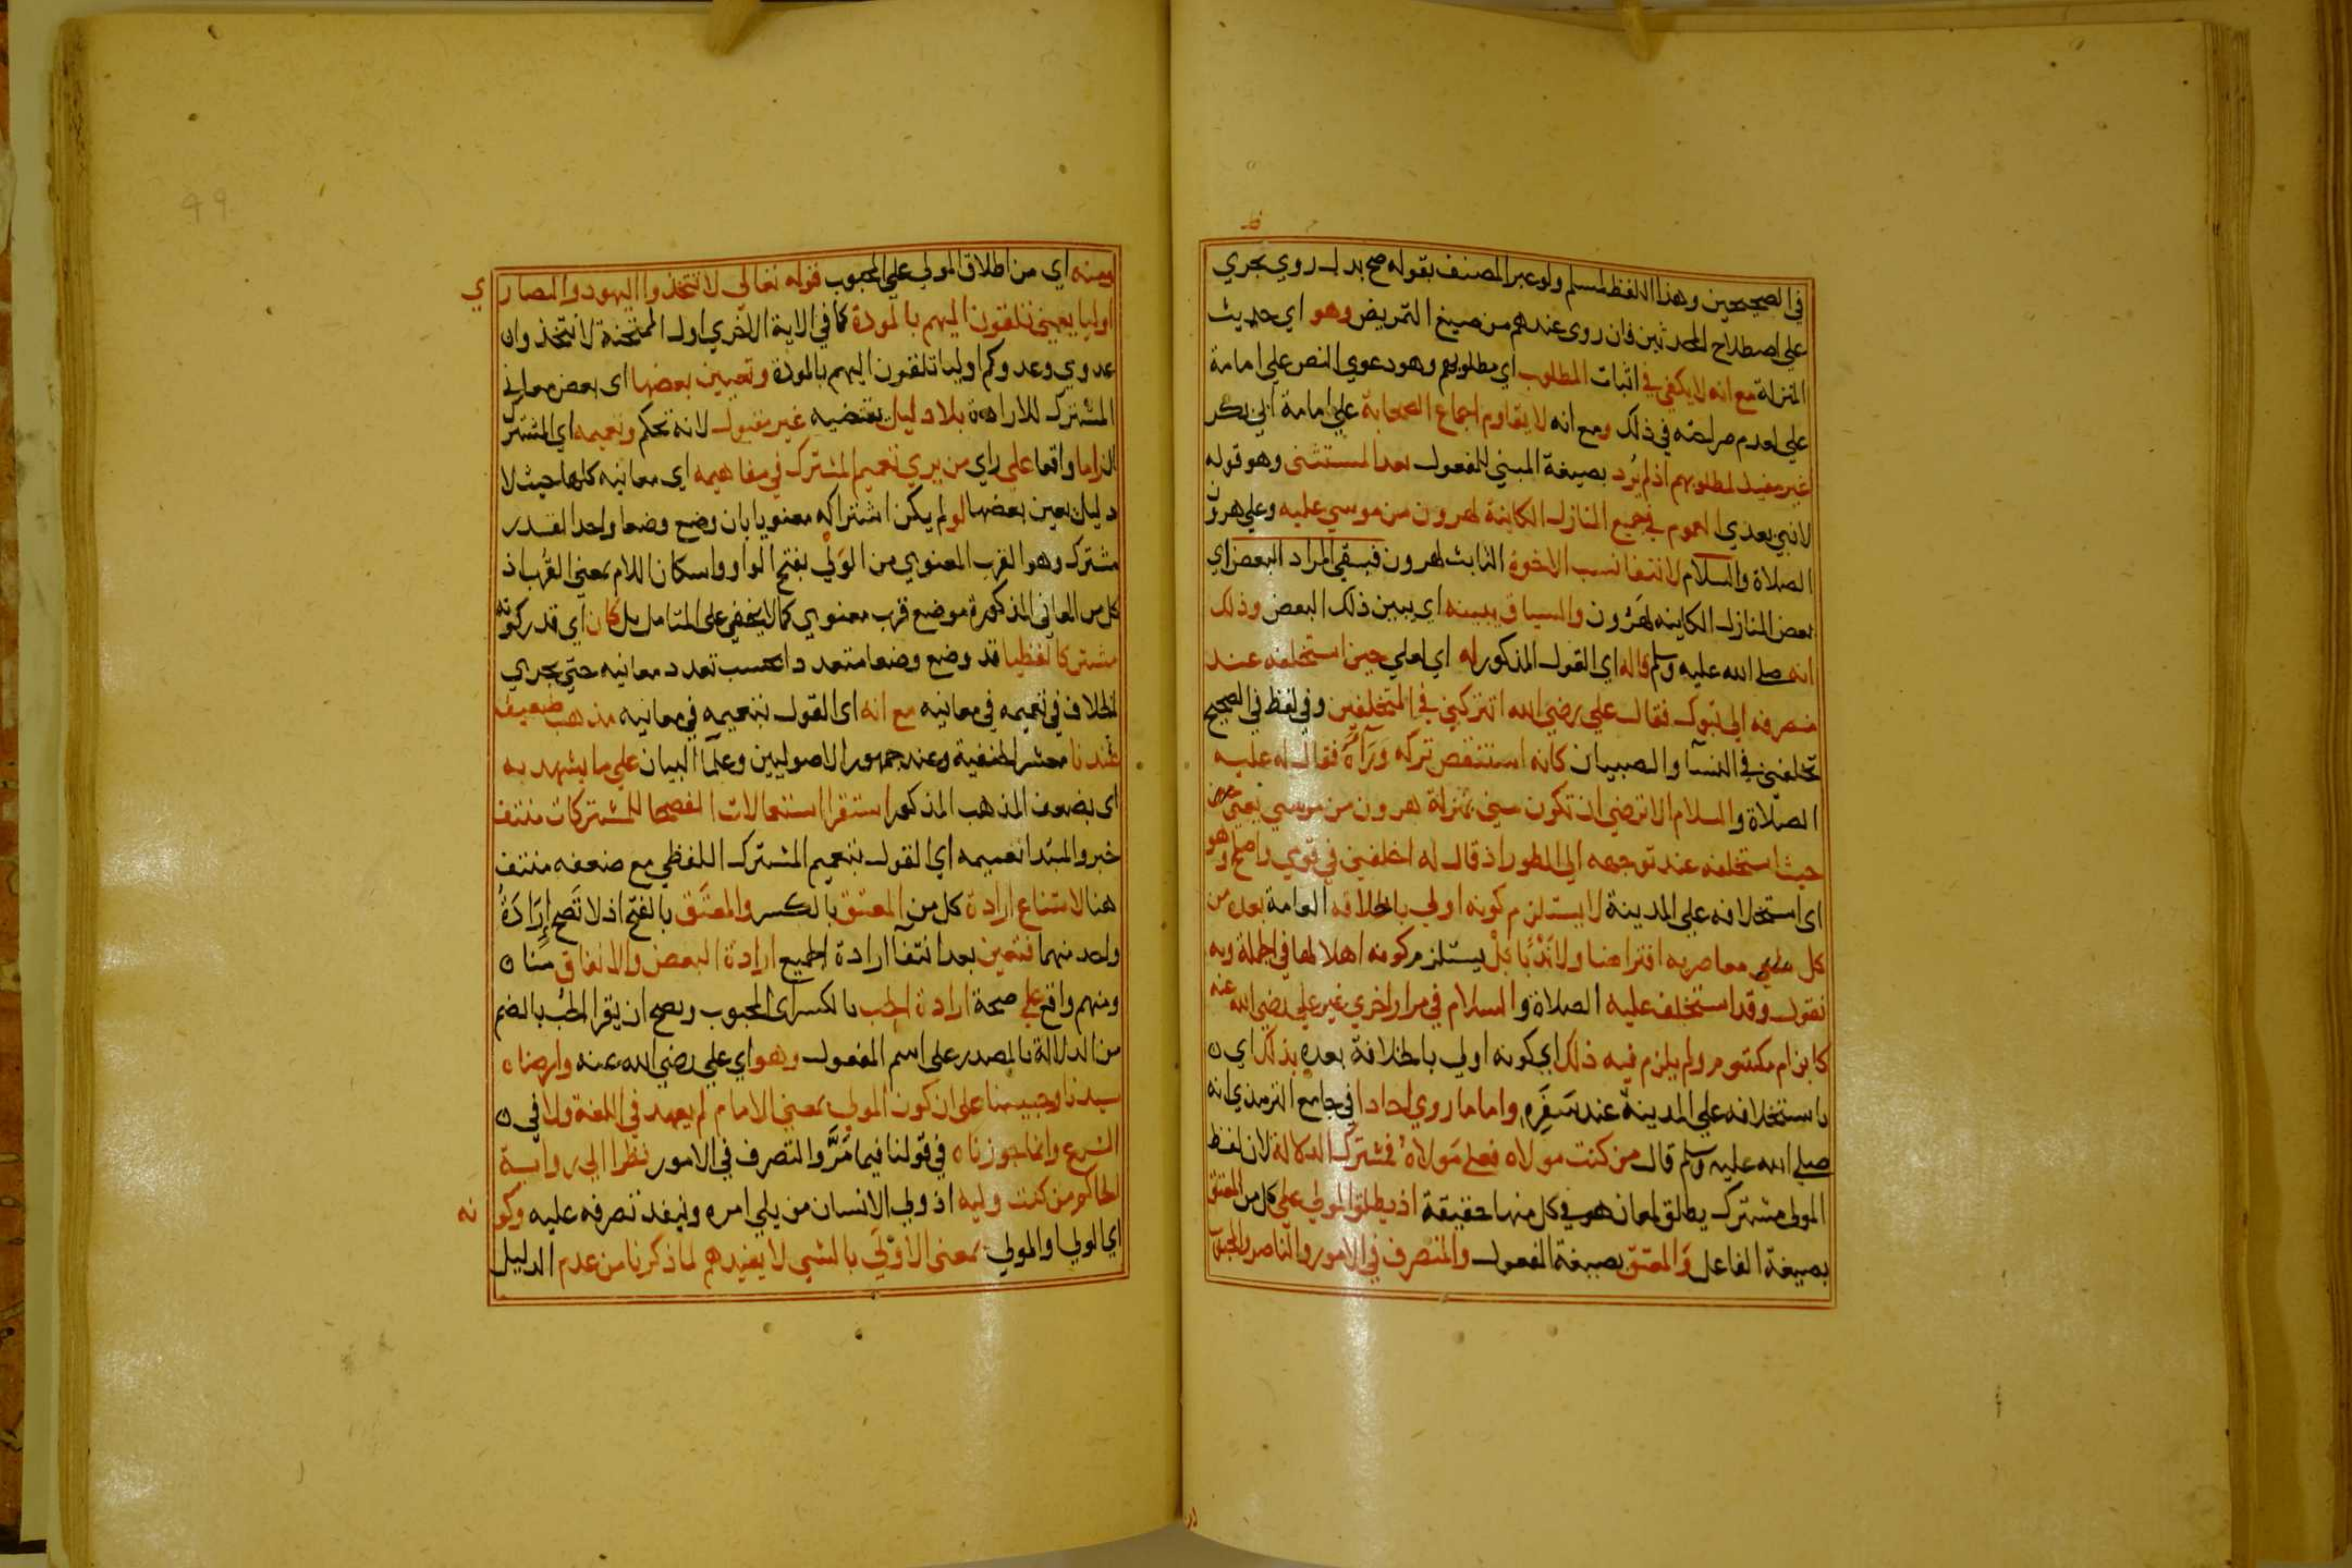 في الصحيحين وهذا اللفظ لمسلم ولو عبر المصنف بقوله صح بدل روي بجري
علي اصطلاح المحدثين فان روى عندهم من صيغ التمريض وهو اي حديث
المنزلة مع انه لا يكفي في اثبات المطلوب اي مطلوبهم وهو دعوي النص علي امامة
علي لعدم صراحته في ذلك ومع انه لا يقاوم اجماع الصحابة علي امامة ابي بكر
غير مفيد لمطلوبهم اذ لم يُرد بصيغة المبني للمفعول بعد المستثنى وهو قوله
لا نبي بعدي العموم في جميع المنازل الكاينة لهرون من موسي عليه وعلي هرون
الصلاة والسلام لانتفا نسب الاخوة الثابت لهرون فبقي المراد البعض اي
بعض المنازل الكاينه لهرون والسياق يبينه اي يبين ذلك البعض وذلك
انه صلي الله عليه وسلم قاله اي القول المذكور له اي لعلي حين استخلفه عند
منصرفه الي تبوك فقال علي رضي الله اتتركني في المتخلفين وفي لفظ في الصحيح
تخلفني في النسآ والصبيان كانه استنقص تركه وَرَآهُ فقال له عليه
الصلاة والسلام الا ترضي ان تكون مني بمنزلة هرون من موسي يعني
حيث استخلفه عند توجهه الي الطور اذ قال له اخلفني في قومي واصلح وهو
اى استخلافه علي المدينة لا يستلزم كونه اولي بالخلافه العامة بعده من
كل معاصريه افتراضا ولا نَدْبًا بَلْ يستلزم كونه اهلا لها في الجملة وبه
نقول وقد استخلف عليه الصلاة والسلام في مرار اخري غير علي رضي الله عنه
كابن ام مكتوم ولم يلزم فيه ذلك اي كونه اولي بالخلافة بعده بذلك اي
باستخلافه علي المدينة عند سَفَرِه واما ما روي احادا في جامع الترمذي انه
صلي الله عليه وسلم قال من كنت مولاه فعلي مَولاهُ فمشترك الدلالة لان لفظ
المولى مشترك يطلق لمعان هو في كل منها حقيقة اذ يطلق المولي علي كل من المعتق
بصيغة الفاعل وَالمعتَق بصيغة المفعول والمتصرف في الامور والناصر والمحبوب
ومنه اي من اطلاق المولي علي المحبوب قوله تعالي لا تتخذوا اليهود والنصاري
اوليا يعني تلقون اليهم بالمودة كما في الاية الاخري اول الممتحنة لا تتخذوا
عدوي وعدوكم اوليا تلقون اليهم بالمودة وتعيين بعضها اى بعض معاني
المشترك للارادة بلا دليل يقتضيه غير مقبول لانه تحكم وتعميمه اي المشترك
الزاما واقعا علي راي من يري تعميم المشترك في مفاهيمه اي معانيه كلها حيث لا
دليل يعين بعضها لو لم يكن اشتراكه معنويا بان وضع وضعا واحدا لقدر
مشترك وهو القرب المعنوي من الوَلْي بفتح الواو واسكان اللام بمعني القُرب اذ
كل من المعاني المذكورة موضع قرب معنوي كما لا يخفي علي المتامل بل كان اي قدر كونه
مشتركا لفظيا قد وضع وضعا متعددا بحسب تعدد معانيه حتي يجري
الخلاف في تعميمه في معانيه مع انه اى القول بتعميمه في معانيه مذهب ضعيف
عندنا معشر الحنفية وعند جمهور الاصوليين وعلمآ البيان علي ما يشهد به
اى بضعف المذهب المذكور استقرا استعمالات الفصحا للمشتركات منتف
خبر والمبتدا تعميمه اي القول بتعميم المشترك اللفظي مع ضعفه منتف
هنا لامتناع ارادة كل من المعتِق بالكسر والمعتَق بالفتح اذ لا تَصح اِرَادَةُ
واحد منهما فتعين بعد انتفآ ارادة الجميع ارادة البعض والاتفاق منا
ومنهم واقع علي صحة ارادة الحِب بالكسر اي المحبوب ويصح ان يقرا الحُب بالضم
من الدلالة بالمصدر علي اسم المفعول وهو اي علي رضي الله عنه وارضاه
سيدنا وحبيبنا علي ان كون المولي بمعني الامام لم يعهد في اللغة ولا في
الشرع وانما جوزناه في قولنا فيما مَرَّ والتصرف في الامور نظرا الي رواية
الحاكم من كنت وليه اذ ولي الانسان من يلي امره وينفذ تصرفه عليه وكونه
اي الولي او المولي بمعني الاَوْلَي بالشي لا يفيدهم لما ذكرنا من عدم الدليل